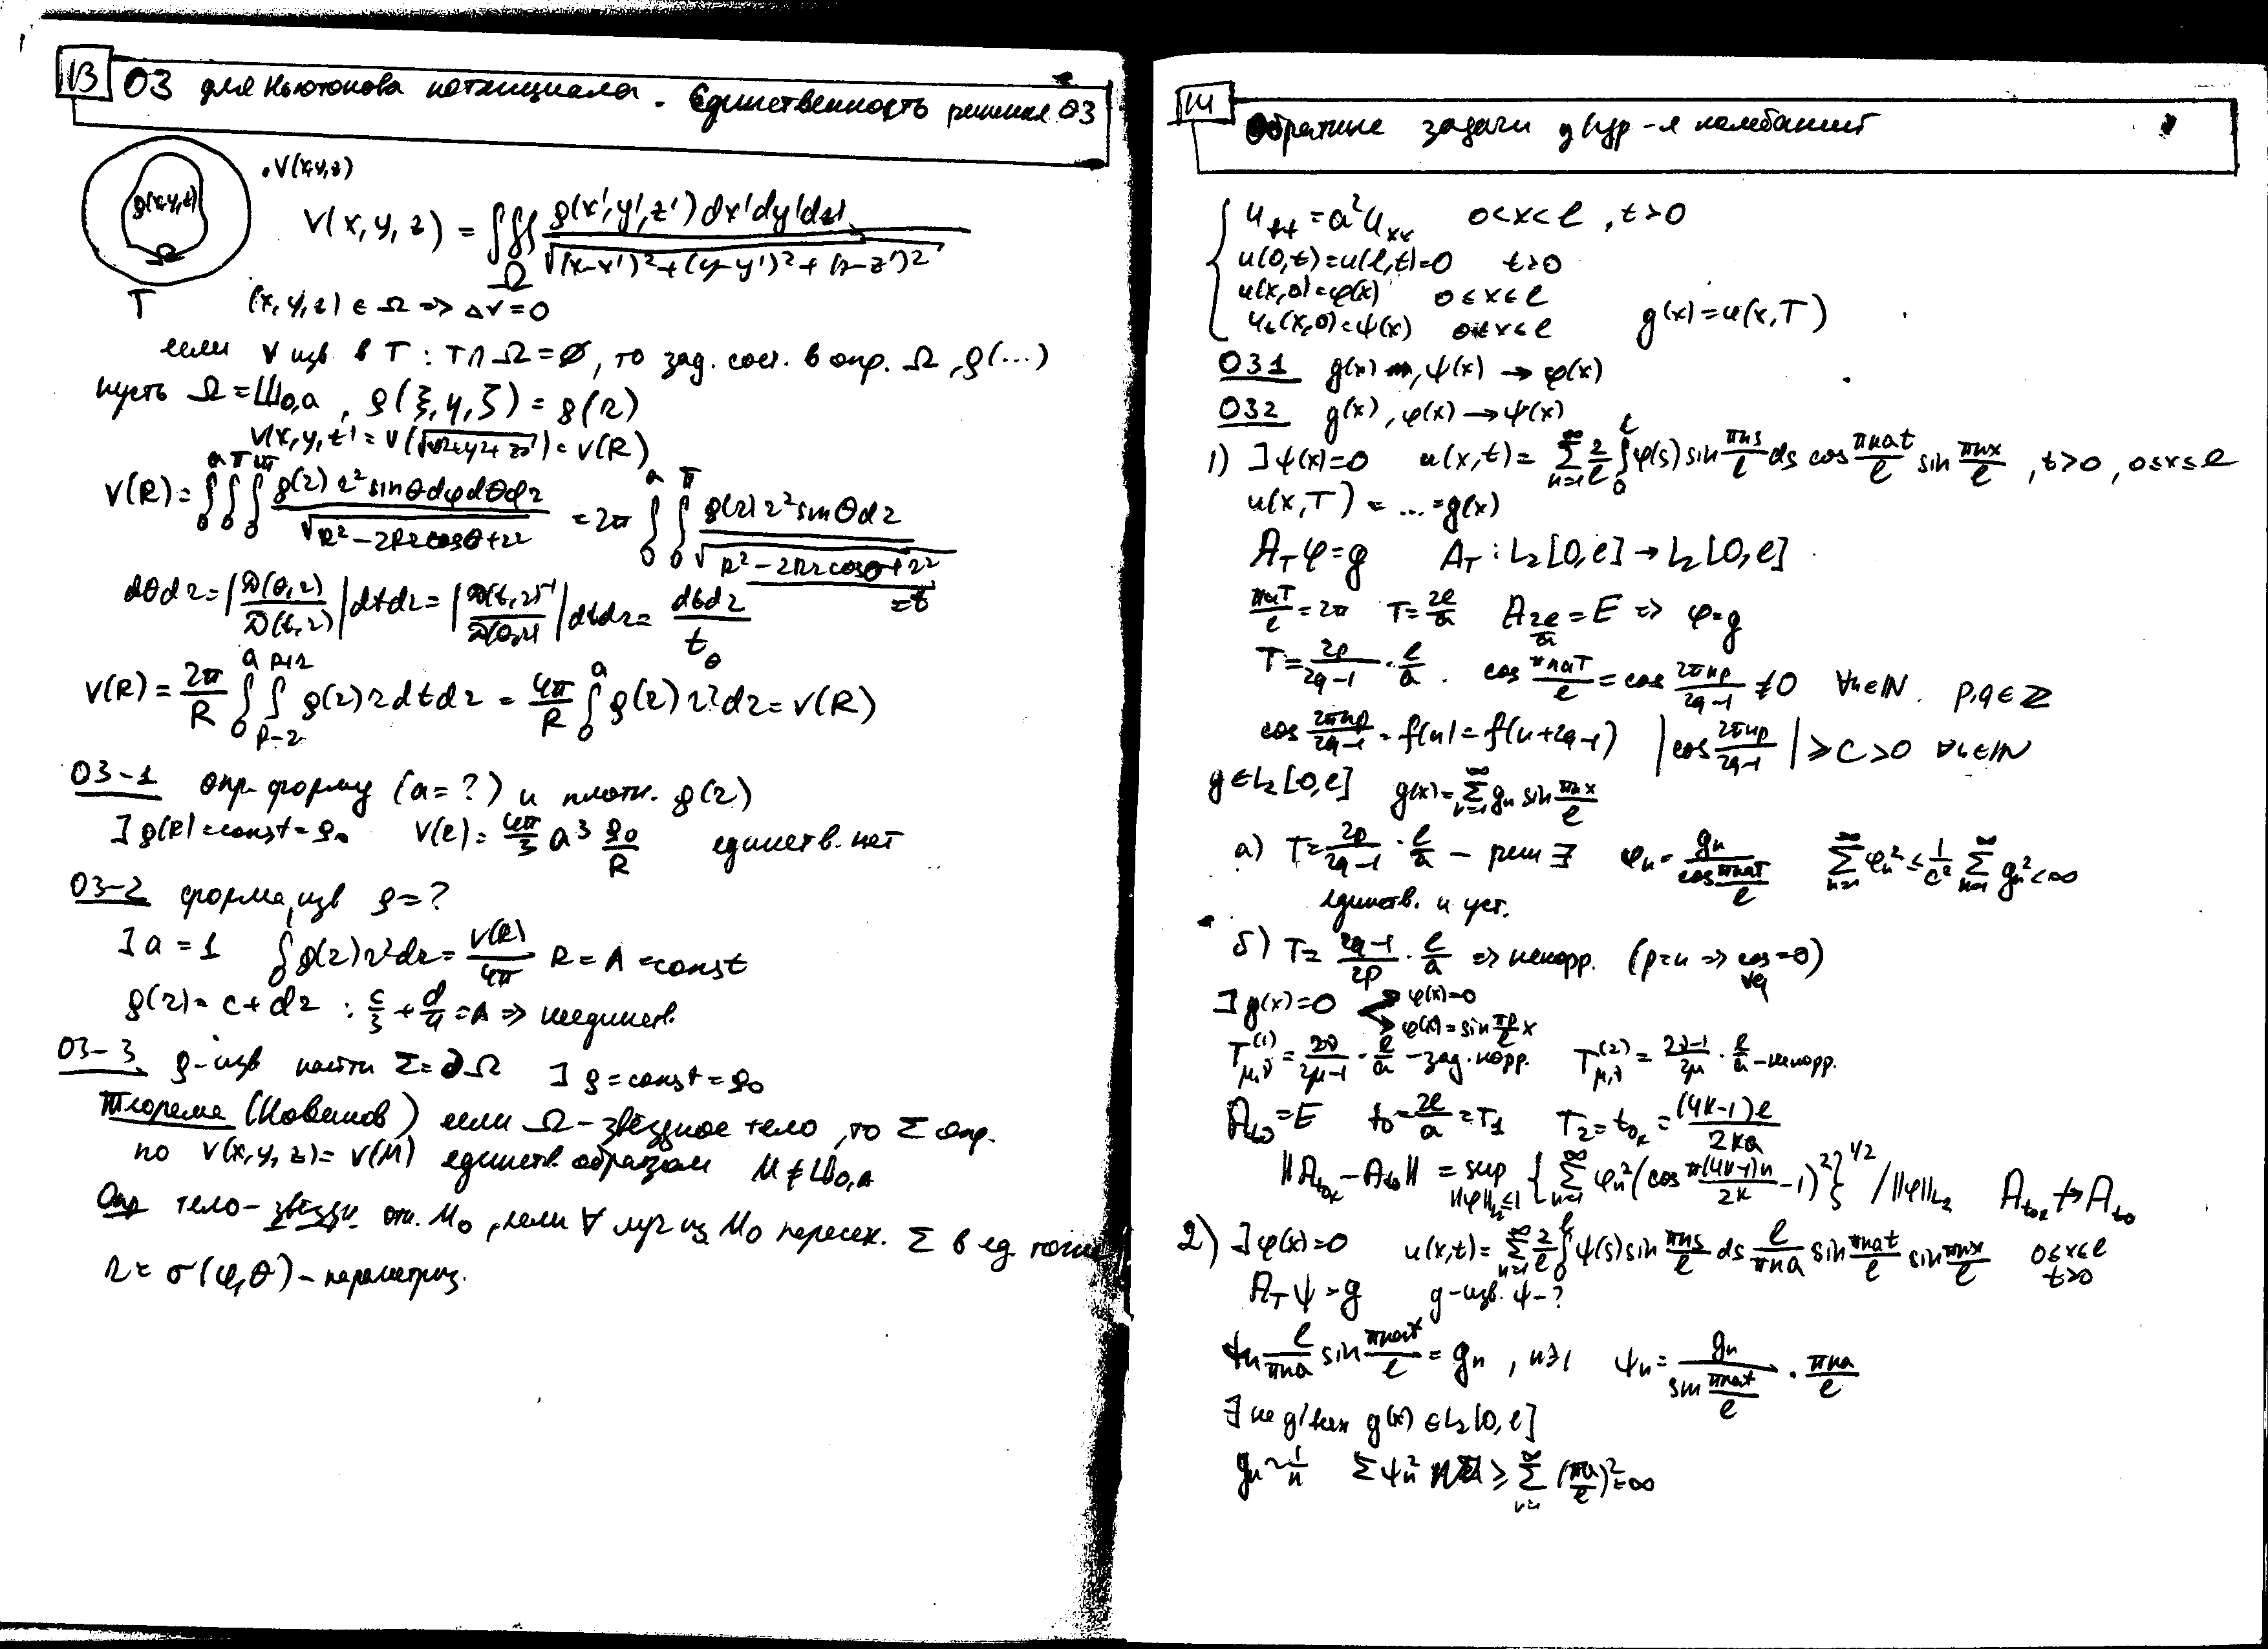 13 ОЗ для Ньютонова потенциала. Единственность решения ОЗ
ρ(x,y,z) Ω T
.V(x,y,z)
V(x,y,z) = ∭_Ω ρ(x',y',z')dx'dy'dz' / √((x-x')²+(y-y')²+(z-z')²)
(x,y,z) ∈ Ω => ΔV=0
если V изв в T : T∩Ω=∅, то зад. сост. в опр. Ω, ρ(...)
пусть Ω=Ш_{0,a}, ρ(ξ,η,ζ) = ρ(r)
V(x,y,z) = V(√(x²+y²+z²)) = V(R)
V(R) = ∫_0^a ∫_0^π ∫_0^{2π} ρ(r) r² sinθ dφdθdr / √(R²-2Rr cosθ+r²) = 2π ∫_0^a ∫_0^π ρ(r) r² sinθ dr / √(R²-2Rr cosθ+r²) =t
dθdr = |D(θ,r)/D(t,r)| dtdr = |D(t,r)⁻¹/D(θ,r)| dtdr = dtdr/t_θ
V(R) = 2π/R ∫_0^a ∫_{R-r}^{R+r} ρ(r) r dt dr = 4π/R ∫_0^a ρ(r) r² dr = V(R)
ОЗ-1 опр. форму (a=?) и плотн. ρ(r)
∃ ρ(R)=const=ρ₀ V(R)= 4π/3 a³ ρ₀/R единств. нет
ОЗ-2 форма изв ρ=?
∃ a=1 ∫ρ(r)r²dr = V(R)/4π R = A = const
ρ(r) = c+dr : c/3 + d/4 = A => неединств.
ОЗ-3 ρ-изв найти Σ=∂Ω ∃ ρ=const=ρ₀
Теорема (Новиков) если Ω-звёздное тело, то Σ опр.
по V(x,y,z)=V(M) единств. образом M∉Ш_{0,a}
Опр тело-звёздн. отн. M₀, если ∀ луч из M₀ пересек. Σ в ед. точке
r = σ(φ,θ) - параметриз.
14 Обратные задачи д/ур-я колебаний
u_tt = a² u_xx 0<x<ℓ, t>0
u(0,t)=u(ℓ,t)=0 t>0
u(x,0)=φ(x) 0≤x≤ℓ
u_t(x,0)=ψ(x) 0≤x≤ℓ g(x)=u(x,T)
ОЗ1 g(x), ψ(x) → φ(x)
ОЗ2 g(x), φ(x) → ψ(x)
1) ∃ ψ(x)=0 u(x,t) = Σ_{n=1}^∞ 2/ℓ ∫_0^ℓ φ(s) sin πns/ℓ ds cos πnat/ℓ sin πnx/ℓ, t>0, 0≤x≤ℓ
u(x,T) = ... = g(x)
A_T φ = g A_T : L₂[0,ℓ] → L₂[0,ℓ]
πaT/ℓ = 2π T = 2ℓ/a A_{2ℓ/a} = E => φ=g
T = 2p/(2q-1) · ℓ/a. cos πnaT/ℓ = cos 2πnp/(2q-1) ≠ 0 ∀n∈ℕ. p,q∈ℤ
cos 2πnp/(2q-1) = f(n) = f(n+2q-1) |cos 2πnp/(2q-1)| ≥ C > 0 ∀n∈ℕ
g∈L₂[0,ℓ] g(x) = Σ_{n=1}^∞ g_n sin πnx/ℓ
а) T = 2p/(2q-1) · ℓ/a - реш ∃ φ_n = g_n / cos πnaT/ℓ Σ_{n=1}^∞ φ_n² ≤ 1/c² Σ_{n=1}^∞ g_n² < ∞
единств. и уст.
б) T = (2q-1)/2p · ℓ/a => некорр. (p=n => cos=0) ∀q
∃ g(x)=0 φ(x)=0
φ(x) = sin πp/ℓ x
T^{(1)}_{μ,ν} = 2ν/(2μ-1) · ℓ/a - зад. корр. T^{(2)}_{μ,ν} = (2ν-1)/2μ · ℓ/a - некорр.
A_{t₀} = E t₀ = 2ℓ/a = T₁ T₂ = t_{0k} = (4k-1)ℓ/2ka
‖A_{t0k} - A_{t0}‖ = sup_{‖φ‖_{L₂}≤1} {Σ_{n=1}^∞ φ_n² (cos π(4k-1)n/2k - 1)²}^{1/2} / ‖φ‖_{L₂} A_{t0k} ↛ A_{t0}
2) ∃ φ(x)=0 u(x,t) = Σ_{n=1}^∞ 2/ℓ ∫_0^ℓ ψ(s) sin πns/ℓ ds ℓ/πna sin πnat/ℓ sin πnx/ℓ 0≤x≤ℓ t>0
A_T ψ = g g-изв. ψ-?
ψ_n ℓ/πna sin πnat/ℓ = g_n, n≥1 ψ_n = g_n / sin πnat/ℓ · πna/ℓ
∃ не д/всех g(x) ∈ L₂[0,ℓ]
g_n ~ 1/n Σψ_n² ≥ Σ_{n=1}^∞ (πa/ℓ)² = ∞